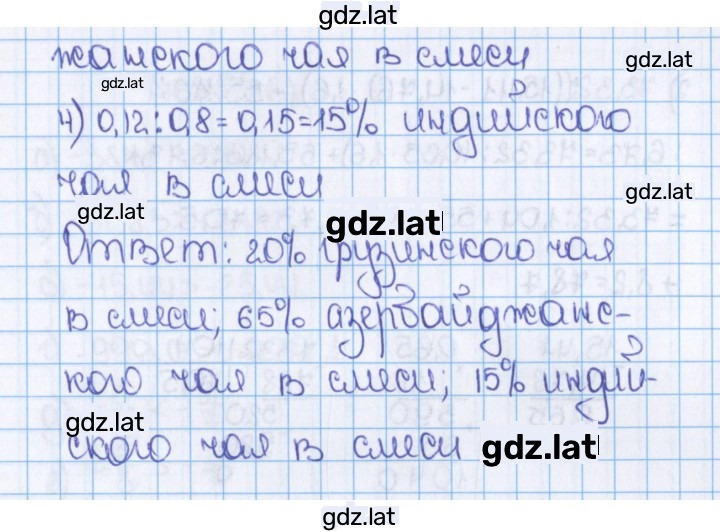 gdz.lat
жанского чая в смеси
gdz.lat
gdz.lat
4) 0,12:0,8=0,15=15% индийского
чая в смеси
gdz.lat
gdz.lat
gdz.lat
Ответ: 20% грузинского чая
в смеси; 65% азербайджанс-
кого чая в смеси; 15% индий-
gdz.lat
ского чая в смеси
gdz.lat
gdz.lat